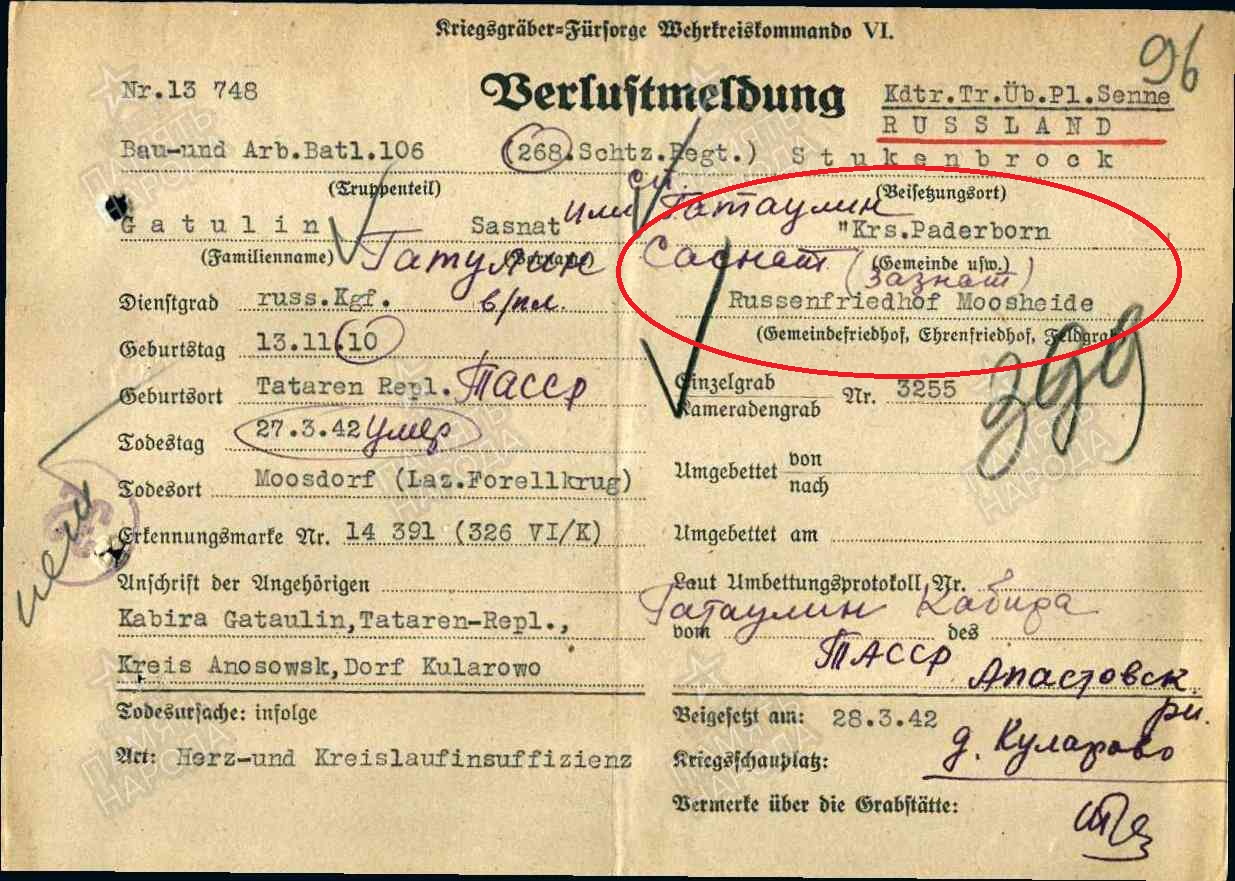 Kriegsgräber=Fürsorge Wehrkreiskommando VI.
96
Nr.13 748
Verlustmeldung
Kdtr.Tr.Üb.Pl.Senne
RUSSLAND
Bau-und Arb.Batl.106 (268.Schtz.Regt.) Stukenbrock
(Truppenteil) (Beisetzungsort)
Gatulin Sasnat или Гатаулин "Krs.Paderborn
(Familienname) (Vorname) (Gemeinde usw.)
Гатулин Саснат (Зазнат)
Dienstgrad russ.Kgf. в/пл. Russenfriedhof Moosheide
(Gemeindefriedhof, Ehrenfriedhof, Feldgrab)
Geburtstag 13.11.10
Geburtsort Tataren Repl. ТАССР
Einzelgrab
Kameradengrab Nr. 3255
Todestag 27.3.42 умер
Todesort Moosdorf (Laz.Forellkrug)
Umgebettet von
nach
Erkennungsmarke Nr. 14 391 (326 VI/K)
Umgebettet am
Anschrift der Angehörigen
Laut Umbettungsprotokoll Nr.
Kabira Gataulin,Tataren-Repl.,
Гатаулин Кабира
vom des
Kreis Anosowsk,Dorf Kularowo
ТАССР Апастовск
рн.
Todesursache: infolge
Beigesetzt am: 28.3.42
Art: Herz-und Kreislaufinsuffizienz
Kriegsschauplatz:
д. Куларово
Vermerke über die Grabstätte:
ПАМЯТЬ
НАРОДА